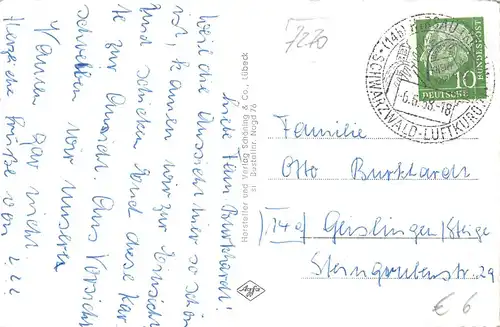 Liebe Fam. Burkhardt!
Weil die Aussicht hier so schön
ist, kamen wir zur Einsicht
und schicken Euch diese Kar-
te zur Ansicht. Aus Vorsicht
schreiben wir unseren
Namen gar nicht.
Herzliche Grüße von
Hersteller und Verlag Schöning & Co., Lübeck
Bestellnr. Nagd 76
Agfa
7270
SCHWARZWALD-LUFTKURORT
DEUTSCHE
BUNDESPOST
10
Familie
Otto Burkhardt
(14a) Geislingen/Steige
Steingrubenstr. 29
€ 6